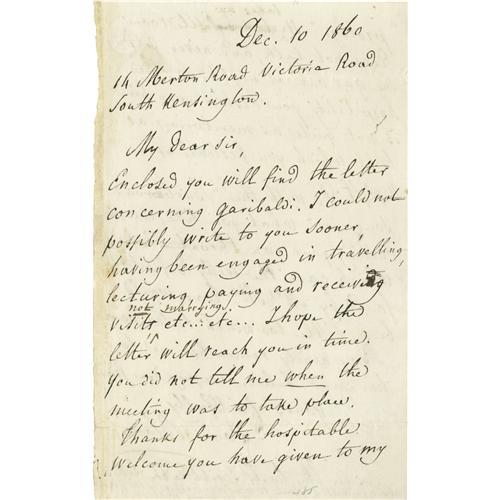 Dec. 10 1860
14 Merton Road Victoria Road
South Kensington.
My dear Sir,
Enclosed you will find the letter
concerning Garibaldi. I could not
possibly write to you sooner,
having been engaged in travelling,
lecturing, paying and receiving
not marrying.
visits etc... etc... I hope the
letter will reach you in time.
You did not tell me when the
meeting was to take place.
Thanks for the hospitable
welcome you have given to my